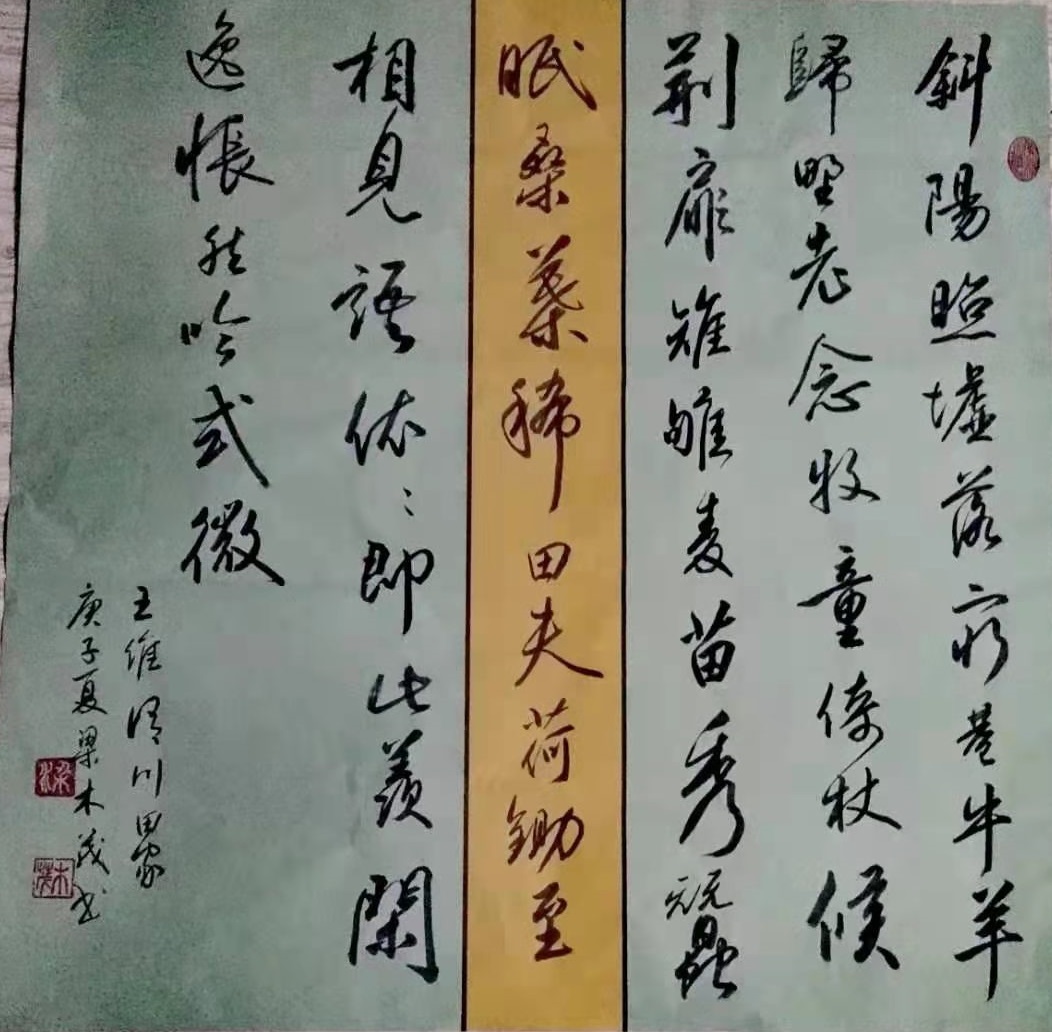 斜陽照墟落窮巷牛羊
歸野老念牧童倚杖候
荊扉雉雊麦苗秀蠶
眠桑葉稀田夫荷鋤至
相見語依〻即此羨閑
逸悵然吟式微
王維渭川田家
庚子夏梁木茂书